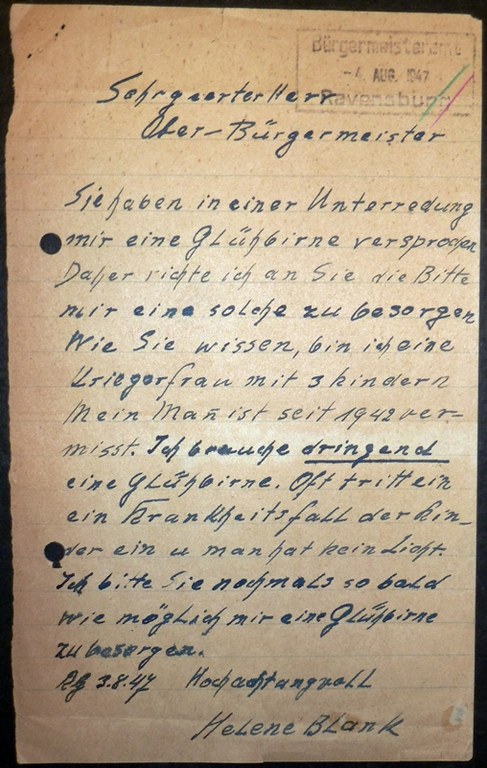 Bürgermeisteramt
-4. AUG. 1947
Ravensburg
Sehrgeerter Herr
Ober-Bürgermeister
Sie haben in einer Unterredung
mir eine Glühbirne versprochen
Daher richte ich an Sie die Bitte
mir eine solche zu besorgen
Wie Sie wissen, bin ich eine
Kriegerfrau mit 3 Kindern
Mein Man̄ ist seit 1942 ver-
misst. Ich brauche dringend
eine Glühbirne. Oft tritt ein
ein Krankheitsfall der Kin-
der ein u man hat kein Licht.
Ich bitte Sie nochmals so bald
wie möglich mir eine Glühbirne
zu besorgen.
Rg 3.8.47 Hochachtungvoll
Helene Blank